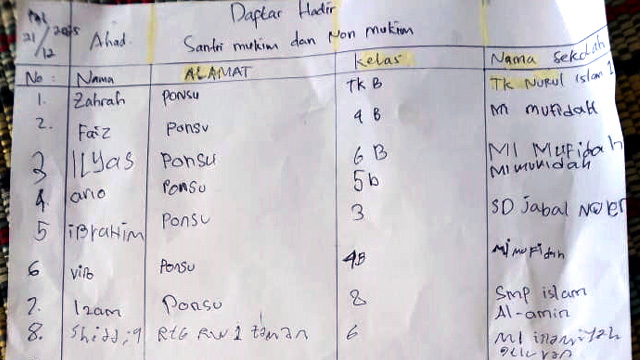 Tgl 21/12 2025 Ahad.
Daptar Hadir
Santri mukim dan Non mukim
No: Nama ALAMAT Kelas Nama Sekolah
1. Zahrah Ponsu TK B TK NURUL Islam 1
2. Faiz Ponsu 4 B MI mufidah
3 ILYas Ponsu 6 B MI MUFIDah
4. ano Ponsu 5b MI mufidah
5 iBRahim Ponsu 3 SD Jabal
6 Ponsu 4B MI mufidah
7. Izam Ponsu 8 Smp islam
Al-amin
8. Shiddiq RW 1 taman 6 MI